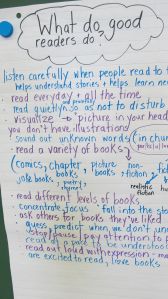 What do good
readers do?
listen carefully when people read to t
helps understand stories + helps learn ne
• read everyday + all the time
• read quietly so as not to disturb
• visualize → "picture in your head
you don't have illustrations
• sound out unknown words (in chun
• read a variety of books
(comics, chapter, picture non-
joke books books, books, fiction,
realistic
fiction
• read different levels of books
• concentrate focus fall into the sto
• ask others for books they've liked
• guess predict when we don't und
• stop/pause pay attention to p
• read at a pace to be understood
• read out loud with expression - m
are excited to read, love books